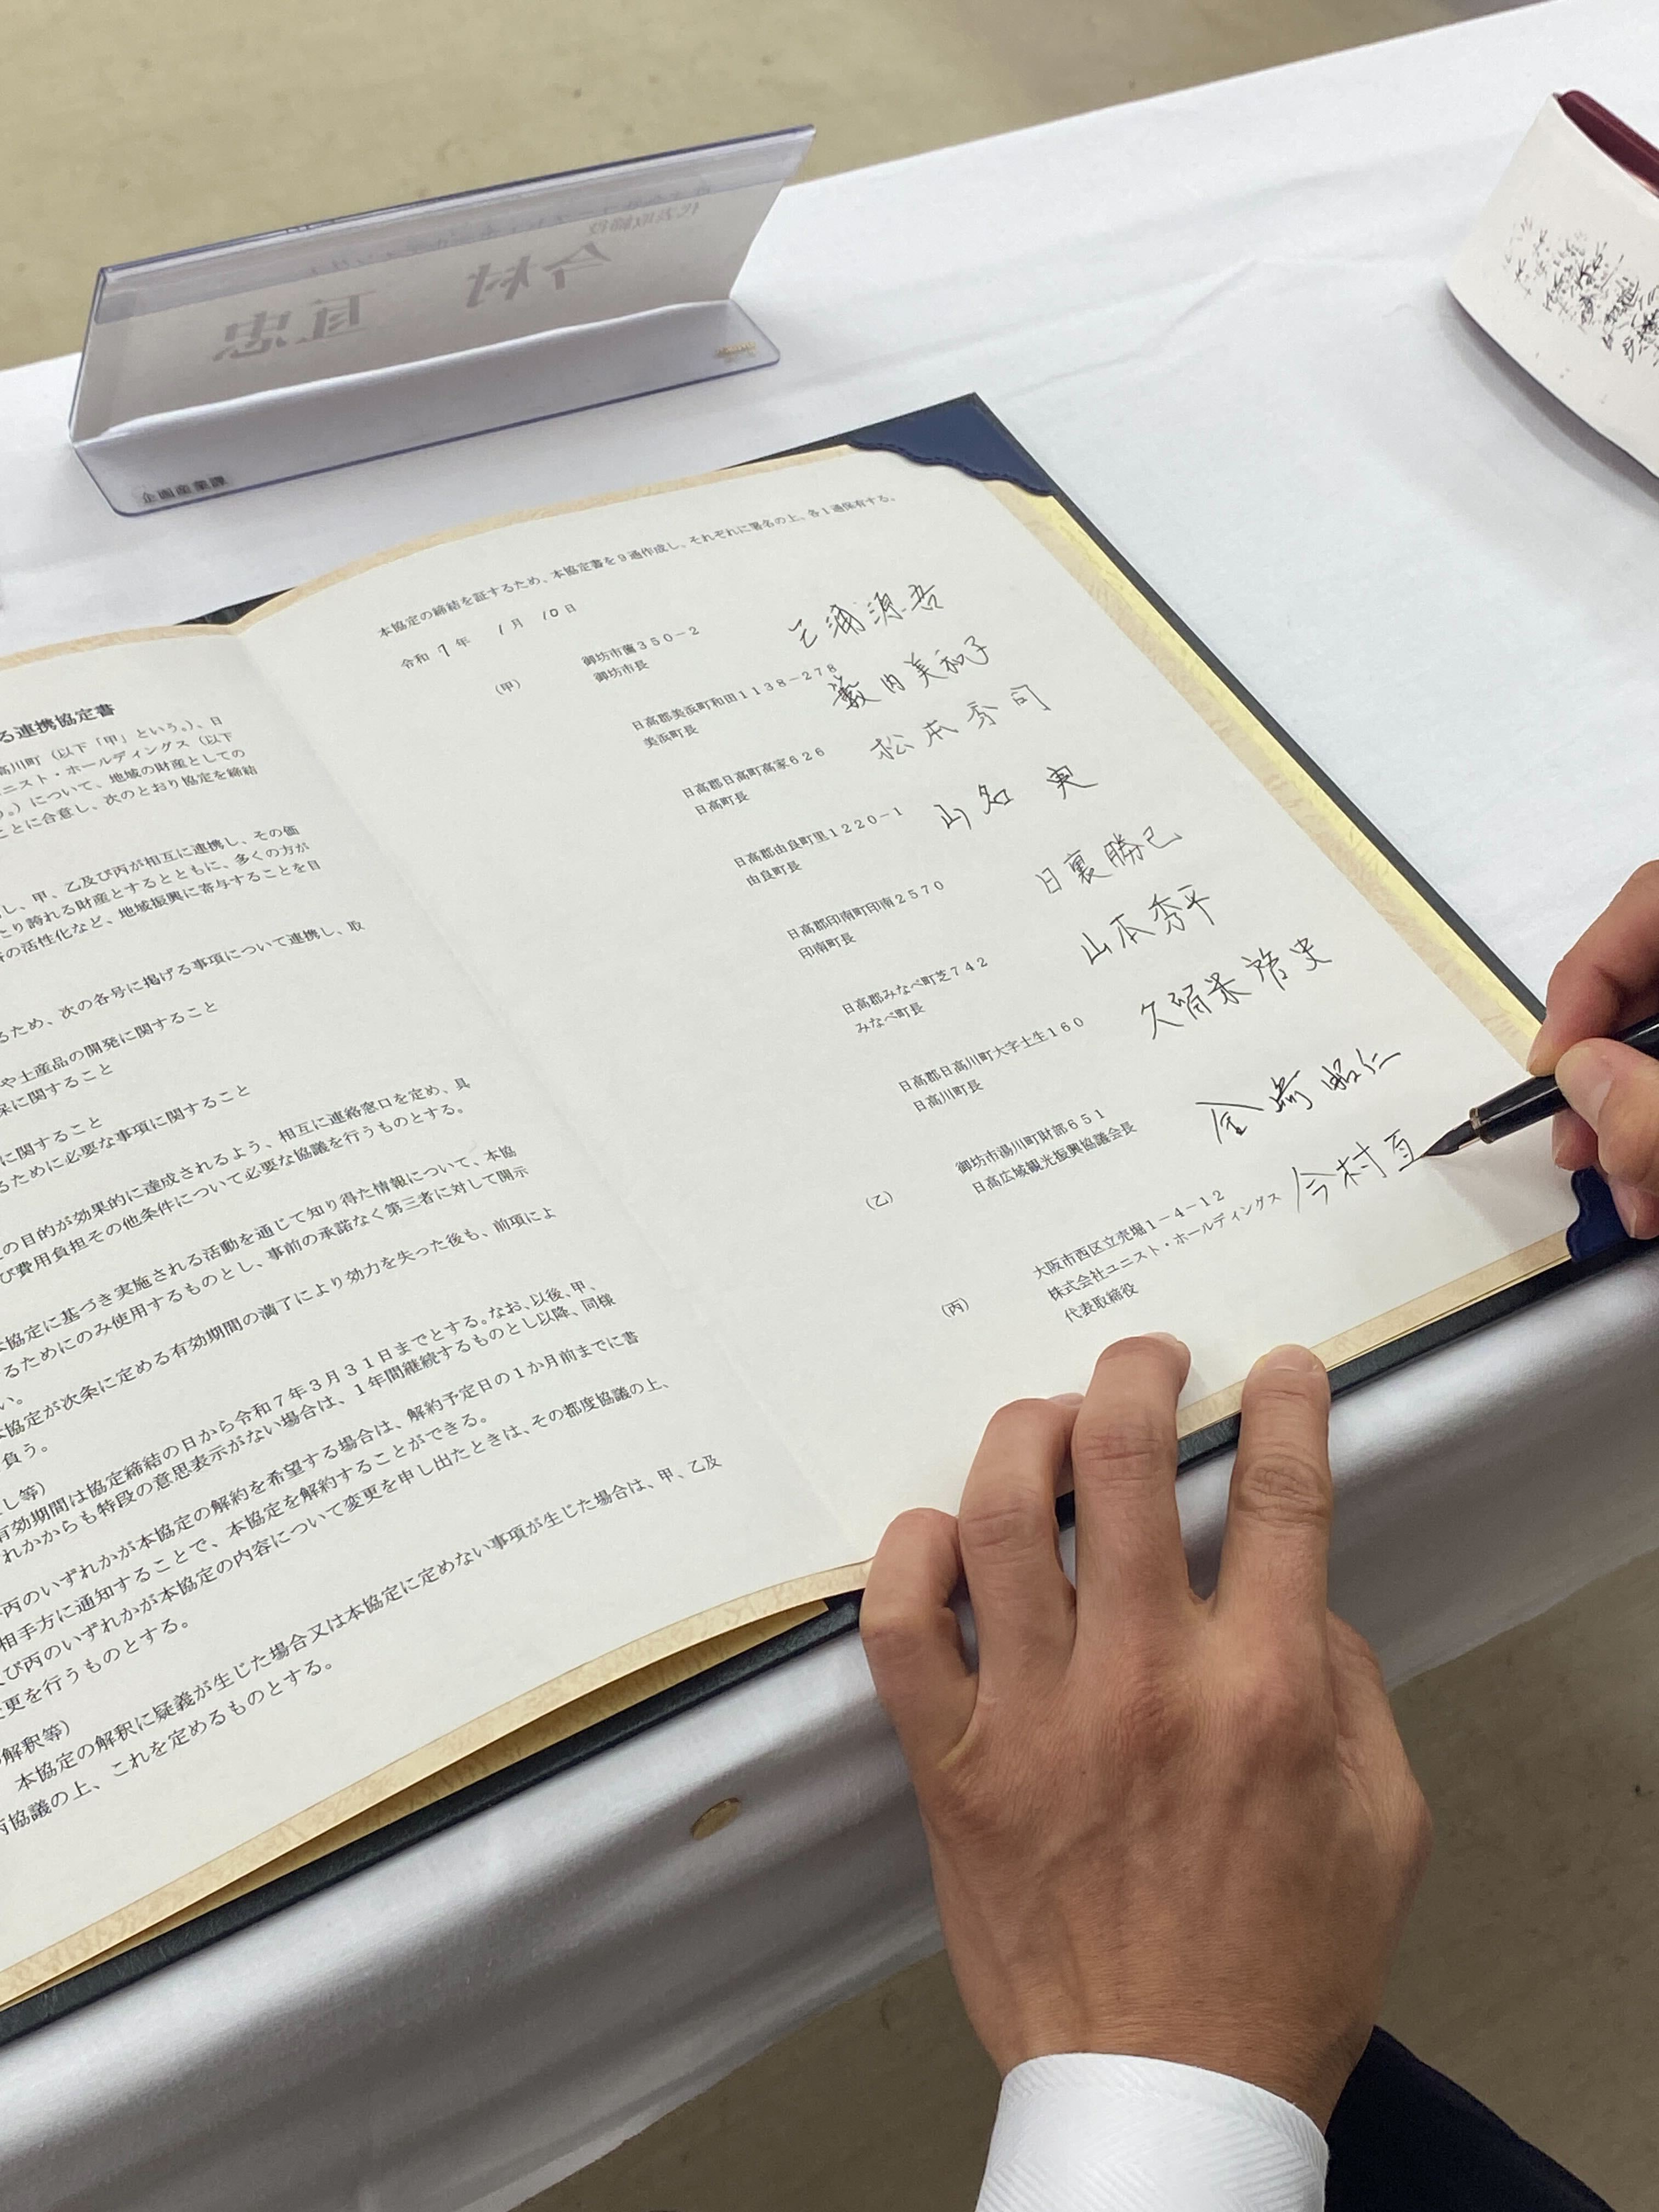 今村 亘忠
代表取締役
企画産業課
る連携協定書
高川町（以下「甲」という。）、日
ニスト・ホールディングス（以下
。）について、地域の財産としての
ことに合意し、次のとおり協定を締結
し、甲、乙及び丙が相互に連携し、その価
こり誇れる財産とするとともに、多くの方が
の活性化など、地域振興に寄与することを目
るため、次の各号に掲げる事項について連携し、取
や土産品の開発に関すること
保に関すること
に関すること
るために必要な事項に関すること
の目的が効果的に達成されるよう、相互に連絡窓口を定め、具
び費用負担その他条件について必要な協議を行うものとする。
本協定に基づき実施される活動を通じて知り得た情報について、本協
るためにのみ使用するものとし、事前の承諾なく第三者に対して開示
い。
本協定が次条に定める有効期間の満了により効力を失った後も、前項によ
負う。
し等）
有効期間は協定締結の日から令和７年３月３１日までとする。なお、以後、甲、
れかからも特段の意思表示がない場合は、１年間継続するものとし以降、同様
丙のいずれかが本協定の解約を希望する場合は、解約予定日の１か月前までに書
相手方に通知することで、本協定を解約することができる。
及び丙のいずれかが本協定の内容について変更を申し出たときは、その都度協議の上、
変更を行うものとする。
解釈等）
本協定の解釈に疑義が生じた場合又は本協定に定めない事項が生じた場合は、甲、乙及
丙協議の上、これを定めるものとする。
本協定の締結を証するため、本協定書を９通作成し、それぞれに署名の上、各１通保有する。
令和 7 年 1 月 10 日
（甲）
御坊市薗３５０－２
御坊市長 三浦源吾
日高郡美浜町和田１１３８－２７８
美浜町長 籔内美和子
日高郡日高町高家６２６
日高町長 松本秀司
日高郡由良町里１２２０－１
由良町長 山名 実
日高郡印南町印南２５７０
印南町長 日裏勝己
日高郡みなべ町芝７４２
みなべ町長 山本秀平
日高郡日高川町大字土生１６０
日高川町長 久留米啓史
（乙）
御坊市湯川町財部６５１
日高広域観光振興協議会長 金﨑昭仁
（丙）
大阪市西区立売堀１－４－１２
株式会社ユニスト・ホールディングス
代表取締役 今村亘